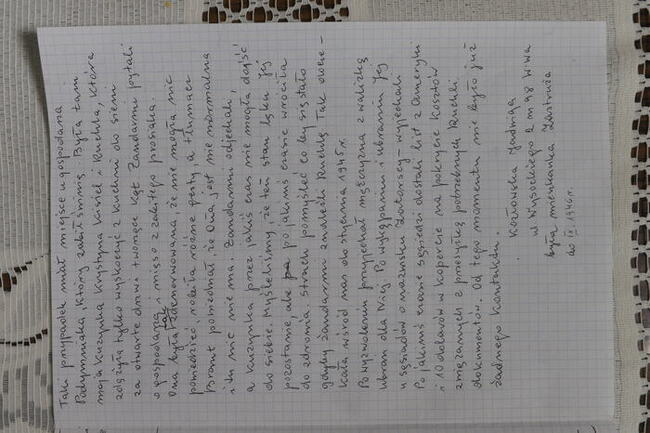 Taki przypadek miał miejsce u gospodarza
Podymniaka, który zabił świnię. Była tam
moja kuzynka Krystyna Kisiel i Ruchla, która
zdążyła tylko wyskoczyć z kuchni do sieni
za otwarte drzwi tworzące kąt. Żandarmi pytali
o gospodarza i mięso z zabitego prosiaka.
Ona była tak zdenerwowana, że nie mogła nic
powiedzieć, robiła różne gesty a tłumacz
Brant powiedział, że ona jest nie normalna
i tu nic nie ma. Żandarmi odjechali,
a kuzynka przez jakiś czas nie mogła dojść
do siebie. Myśleliśmy że ten stan lęku jej
pozostanie, ale po jakimś czasie wróciła
do zdrowia. Strach pomyśleć co by się stało
gdyby żandarmi znaleźli Ruchlę. Tak docze-
kała wśród nas do stycznia 1945 r.
Po wyzwoleniu przyjechał mężczyzna z walizką
ubrań dla Niej. Po wykąpaniu i ubraniu Jej
u sąsiadów o nazwisku wyjechali.
Po jakimś czasie sąsiedzi dostali list z Ameryki
i 10 dolarów w kopercie na pokrycie kosztów
związanych z przesyłką potrzebnych Ruchli
dokumentów. Od tego momentu nie było już
żadnego kontaktu.
Kozłowska Jadwiga
ul Wysockiego 2 m 98 W-wa
była mieszkanka
do IX 1946 r.